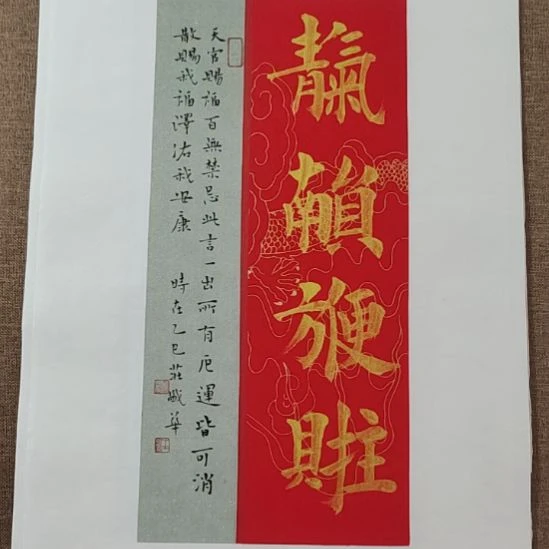 靝
天官賜福百無禁忌此言一出所有厄運皆可消
散賜我福澤佑我安康 時在乙巳莊華